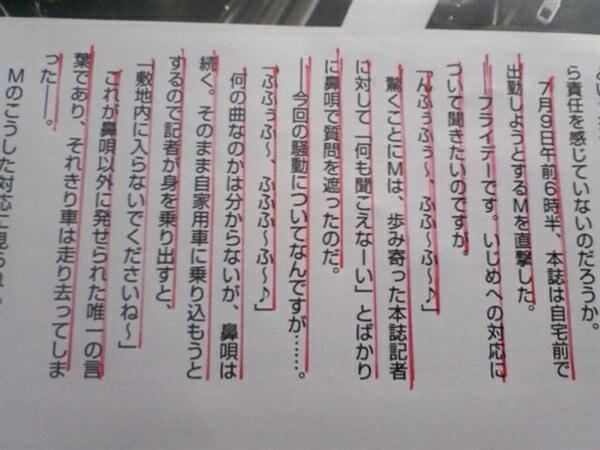 ら責任を感じていないのだろうか。
7月9日午前6時半、本誌は自宅前で
出勤しようとするMを直撃した。
──フライデーです。いじめへの対応に
ついて聞きたいのですが。
「んふぅふぅ〜、ふふ〜ふ〜♪」
驚くことにMは、歩み寄った本誌記者
に対して「何も聞こえなーい」とばかり
に鼻唄で質問を遮ったのだ。
──今回の騒動についてなんですが……。
「ふふぅふ〜、ふふふ〜ふ〜♪」
何の曲なのかは分からないが、鼻唄は
続く。そのまま自家用車に乗り込もうと
するので記者が身を乗り出すと、
「敷地内に入らないでくださいね〜」
これが鼻唄以外に発せられた唯一の言
葉であり、それきり車は走り去ってしま
った──。
Mのこうした対応に見られ